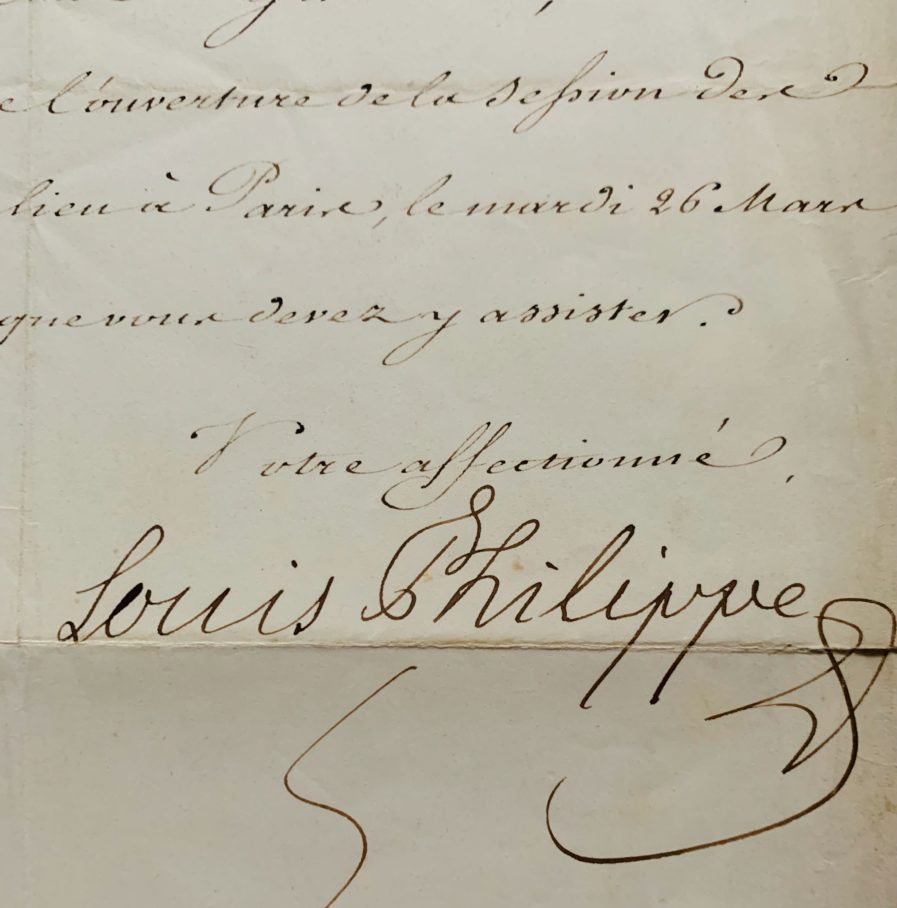 l'ouverture de la Session des
lieu à Paris, le mardi 26 Mars
que vous devez y assister.
Votre affectionné,
Louis Philippe